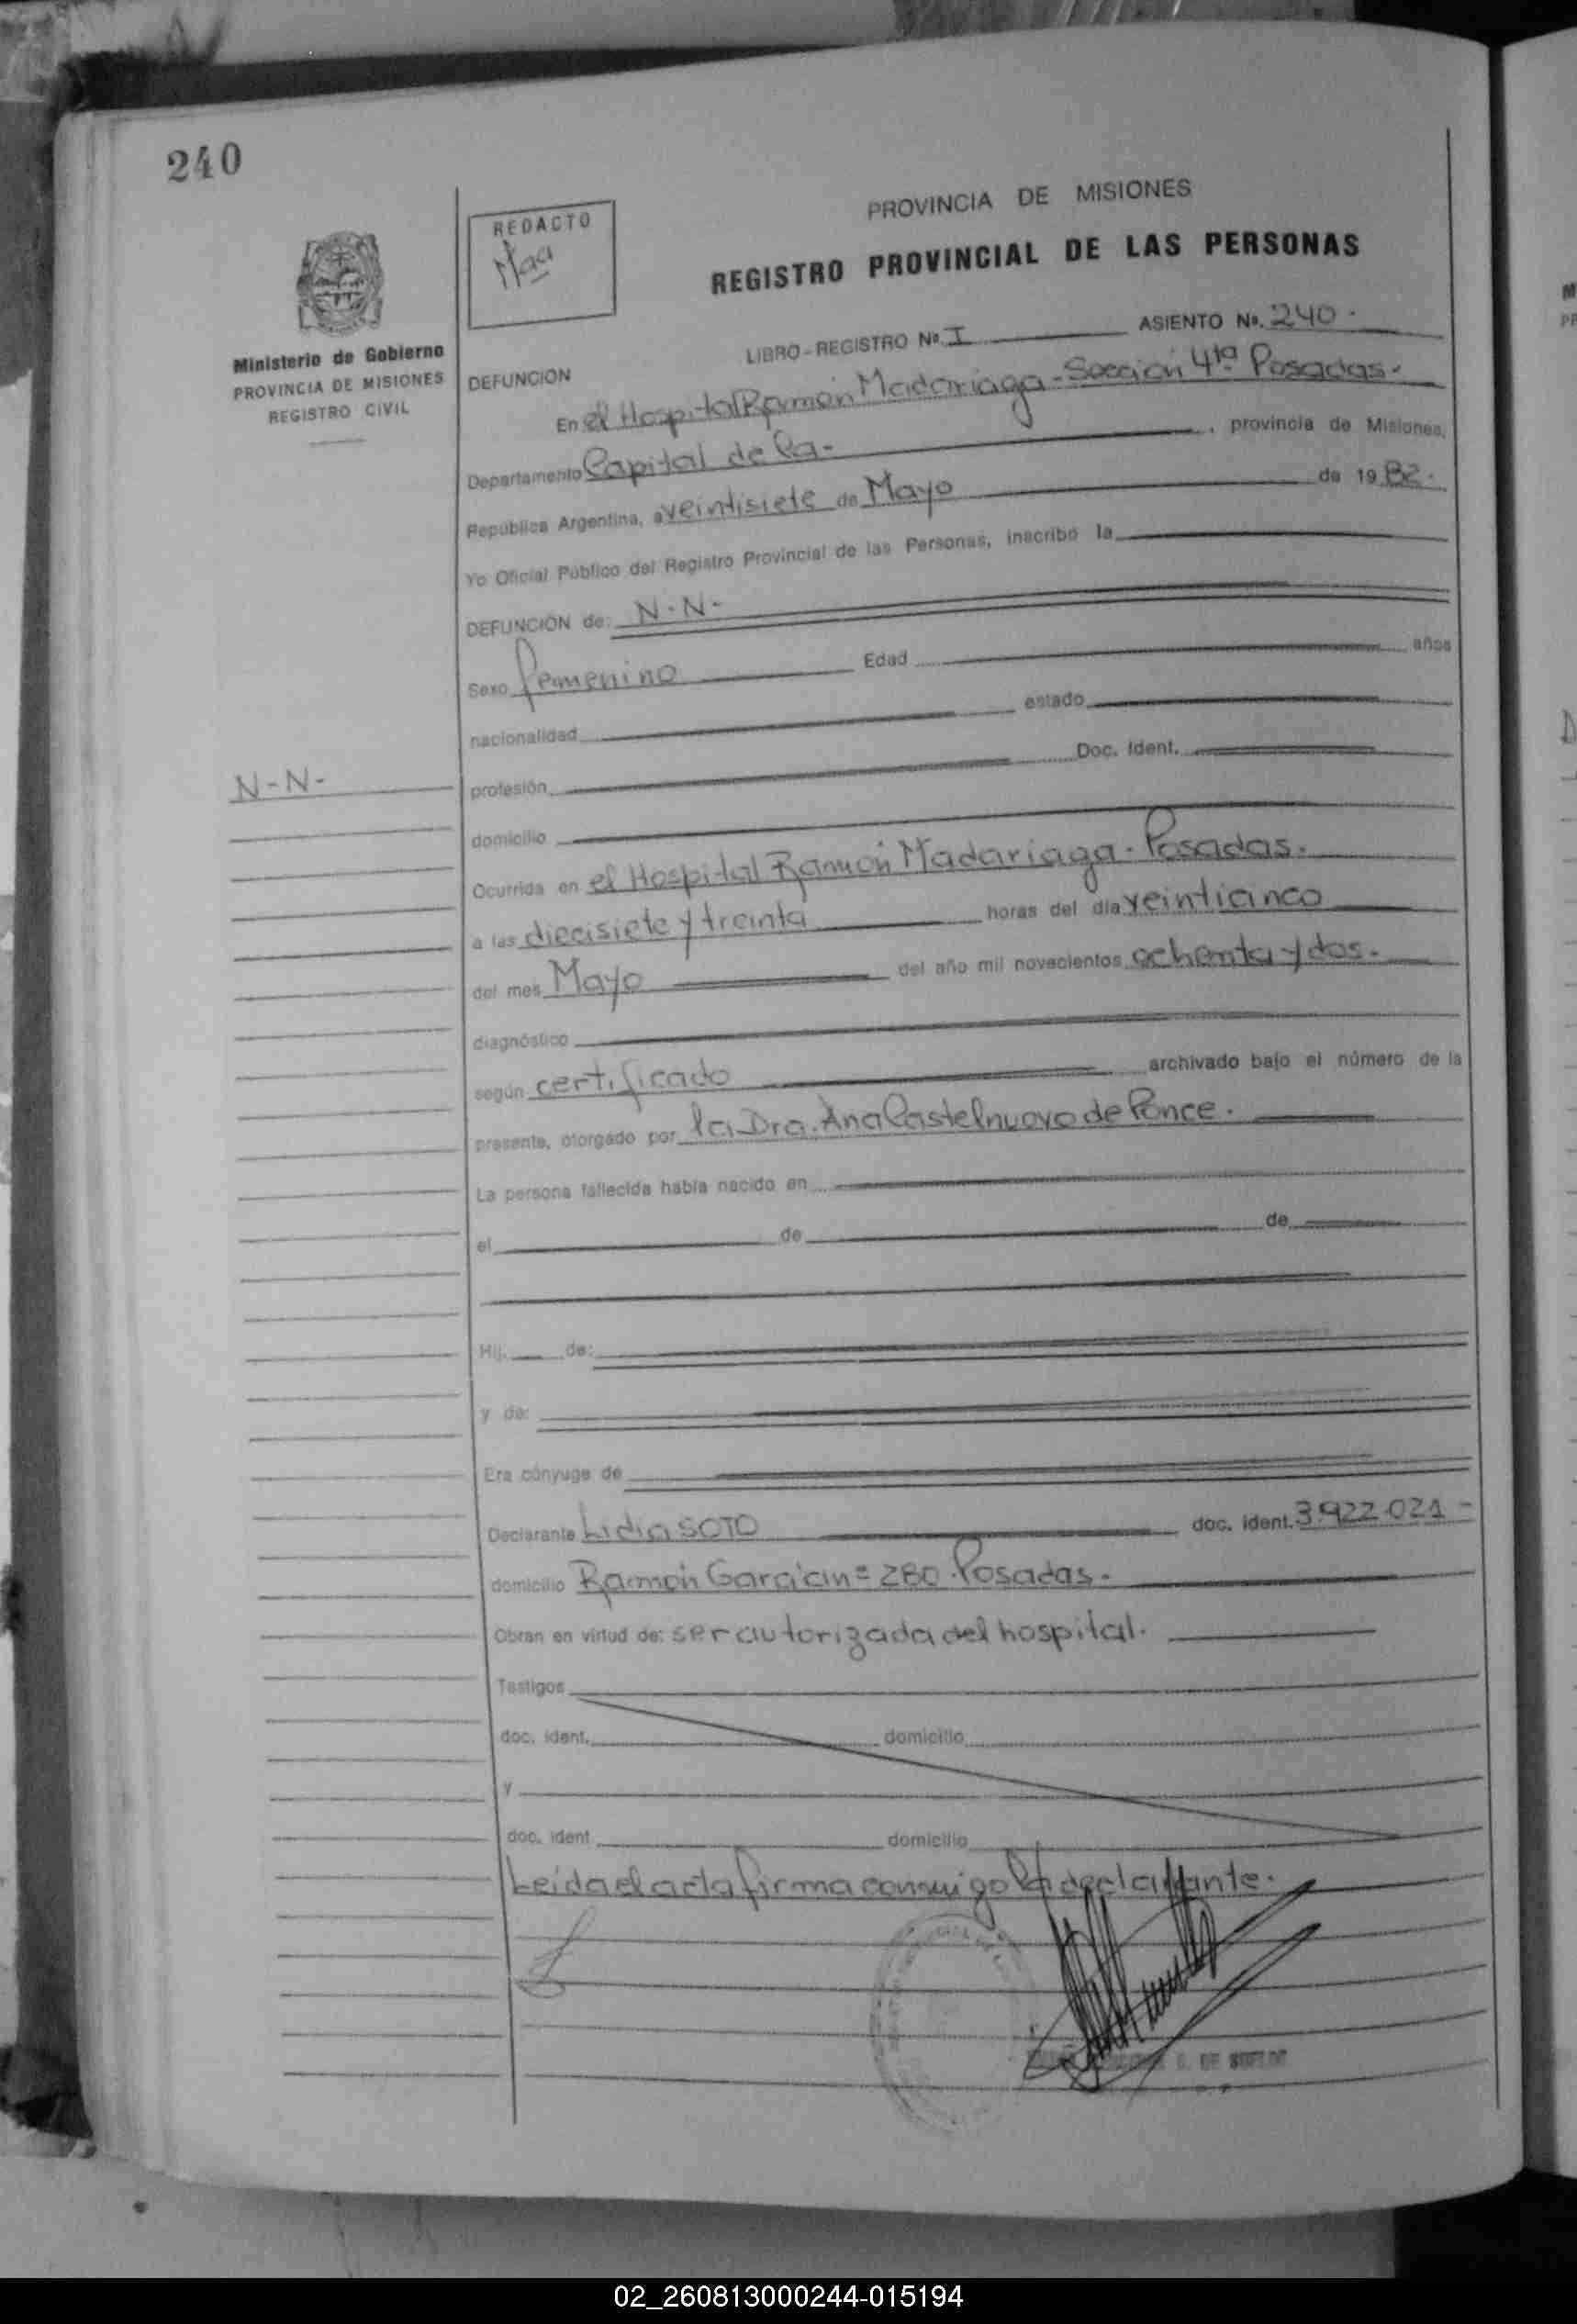 240
REDACTO
Maa
PROVINCIA DE MISIONES
REGISTRO PROVINCIAL DE LAS PERSONAS
Ministerio de Gobierno
PROVINCIA DE MISIONES
REGISTRO CIVIL
LIBRO-REGISTRO Nº. I ASIENTO Nº. 240.
DEFUNCION
En el Hospital Ramón Madariaga-Sección 4ta Posadas.
Departamento Capital de la- , provincia de Misiones,
República Argentina, a veintisiete de Mayo de 1982.
Yo Oficial Público del Registro Provincial de las Personas, inscribo la
DEFUNCION de: N.N.
Sexo femenino Edad años
nacionalidad estado
N-N-
profesión Doc. Ident.
domicilio
Ocurrida en el Hospital Ramón Madariaga. Posadas.
a las diecisiete y treinta horas del día veinticinco
del mes Mayo del año mil novecientos ochenta y dos.
diagnóstico
según certificado archivado bajo el número de la
presente, otorgado por la Dra. Ana Castelnuovo de Ponce.
La persona fallecida había nacido en
el de de
Hij. de:
y de:
Era cónyuge de
Declarante Lidia SOTO doc. ident. 3.922.021-
domicilio Ramón García nº 280. Posadas.
Obran en virtud de: ser autorizada del hospital.
Testigos
doc. ident. domicilio
y
doc. ident domicilio
Leída el acta firma conmigo la declarante.
DE
02_260813000244-015194